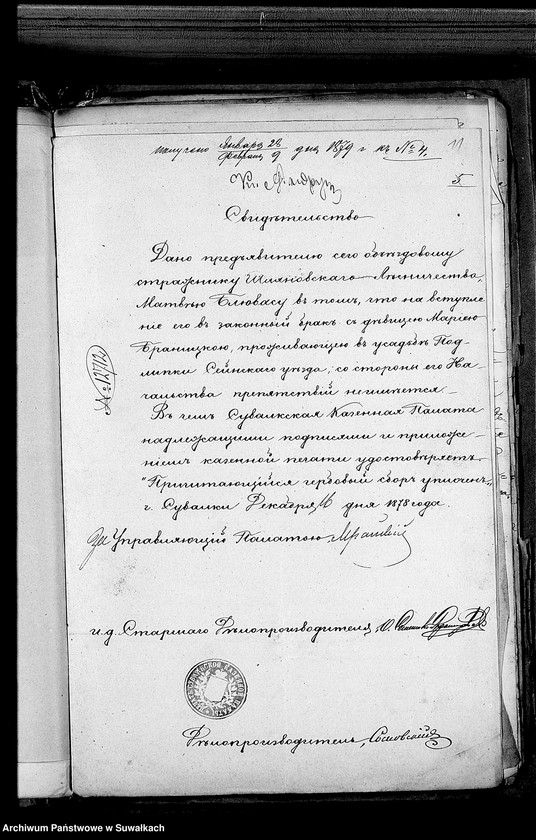 получено Января 28 / Февраля 9 дня 1879 г къ № 4.
11
5
Свидѣтельство
Дано предъявителю сего объѣздовому
стражнику Шляновскаго Лѣсничества,
Матвѣю Блювасу въ томъ, что на вступле
ніе его въ законный бракъ съ дѣвицею Маріею
Браницкою, проживающею въ усадьбѣ Под-
липки Сейнскаго уѣзда, со стороны его На-
чальства препятствій неимѣется.
Въ чемъ Сувалкская Казенная Палата
надлежащими подписями и приложе-
ніемъ казенной печати удостовѣряетъ.
"Причитающійся гербовый сборъ уплоченъ"
г. Сувалки Декабря 16 дня 1878 года.
За Управляющій Палатою
и. д. Старшаго Дѣлопроизводителя
Дѣлопроизводитель, Сосновскій
Archiwum Państwowe w Suwałkach